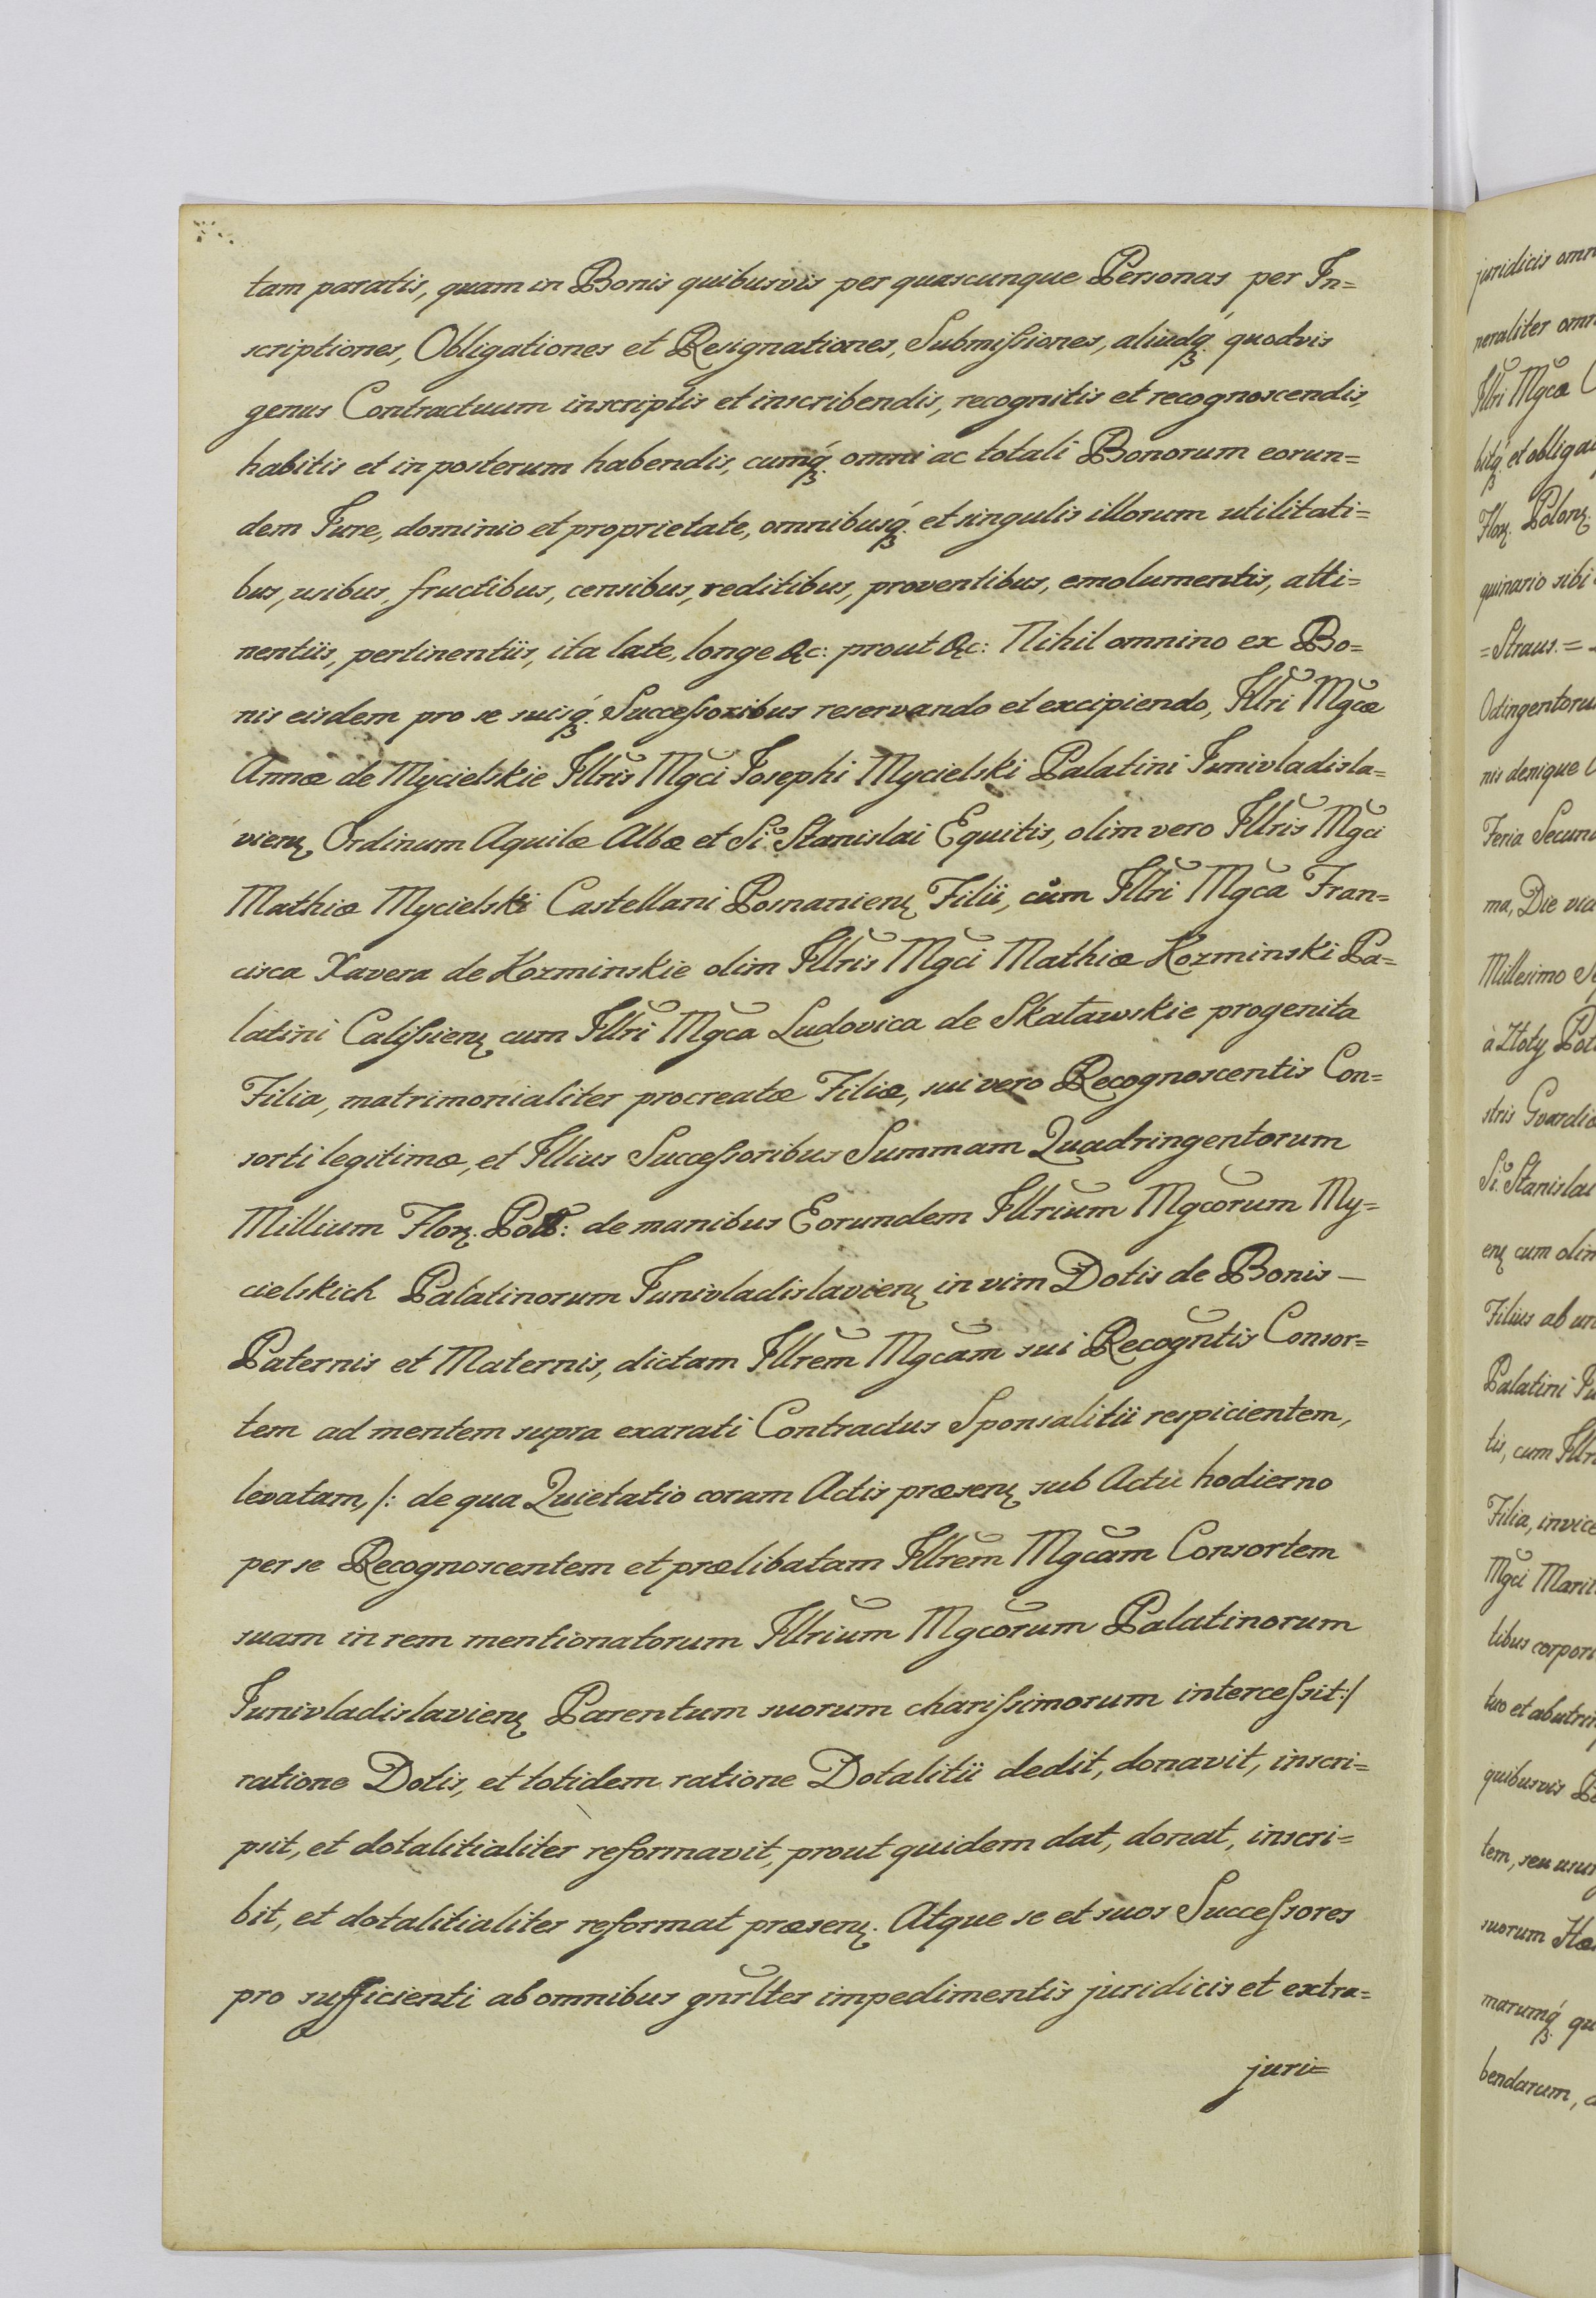 tam paratis, quam in Bonis quibusvis per quascunque Personas per In=
scriptiones, Obligationes et Resignationes, Submissiones, aliudq́ꝫ quodvis
genus Contractuum inscriptis et inscribendis, recognitis et recognoscendis,
habitis et in posterum habendis, cumq́ꝫ omni ac totali Bonorum eorun=
dem Jure, dominio et proprietate, omnibusq́ꝫ et singulis illorum utilitati=
bus, usibus, fructibus, censibus, reditibus, proventibus, emolumentis, atti=
nentiis, pertinentiis, ita late, longe &c: prout &c: Nihil omnino ex Bo=
nis eisdem pro se suisq́ꝫ Successoribus reservando et excipiendo, Illri Mgcæ
Annæ de Mycielskie Illris Mgci Josephi Mycielski Palatini Junivladisla=
vienꝭ Ordinum Aquilæ Albæ et Sĭ. Stanislai Equitis, olim vero Illris Mgci
Mathiæ Mycielski Castellani Posnanienꝭ Filii, cum Illri Mgca Fran=
cisca Xavera de Kozminskie olim Illris Mgci Mathiæ Kozminski Pa=
latini Calissienꝭ cum Illri Mgca Ludovica de Skatawskie progenita
Filia, matrimonialiter procreatæ Filiæ, sui vero Recognoscentis Con=
sorti legitimæ, et Illius Successoribus Summam Quadringentorum
Millium Florꝭ. Poll: de manibus Eorundem Illrium Mgcorum My=
cielskich Palatinorum Junivladislavienꝭ in vim Dotis de Bonis —
Paternis et Maternis, dictam Illrem Mgcam sui Recogntis Consor=
tem ad mentem supra exarati Contractus Sponsalitii respicientem,
levatam, /: de qua Quietatio coram Actis præsenꝭ sub Actu hodierno
per se Recognoscentem et prælibatam Illrem Mgcam Consortem
suam in rem mentionatorum Illrium Mgcorum Palatinorum
Junivladislavienꝭ Parentum suorum charissimorum intercessit:/
ratione Dotis, et totidem ratione Dotalitii dedit, donavit, inscri=
psit, et dotalitialiter reformavit, prout quidem dat, donat, inscri=
bit, et dotalitialiter reformat præsenꝭ. Atque se et suos Successores
pro sufficienti ab omnibus gnrlter impedimentis juridicis et extra=
juri=
juridicis omn
neraliter omn
Illri Mgcæ C
bitq́ꝫ et obliga
Florꝭ. Polonꝭ.
quinario sibi
=Straus.=
Odingentoru
nis denique
Feria Secun
ma, Die vic
Millesimo Se
à Złoty Pot
stris Gvardiæ
Sĭ. Stanislai
enꝭ cum olim
Filius ab un
Palatini Ju
tis, cum Illri
Filia, invice
Mgci Marit
tibus corpori
tuo et ab utri
quibusvis Bo
tem, seu usu
suorum Hæ
marumq́ꝫ qu
bendarum,